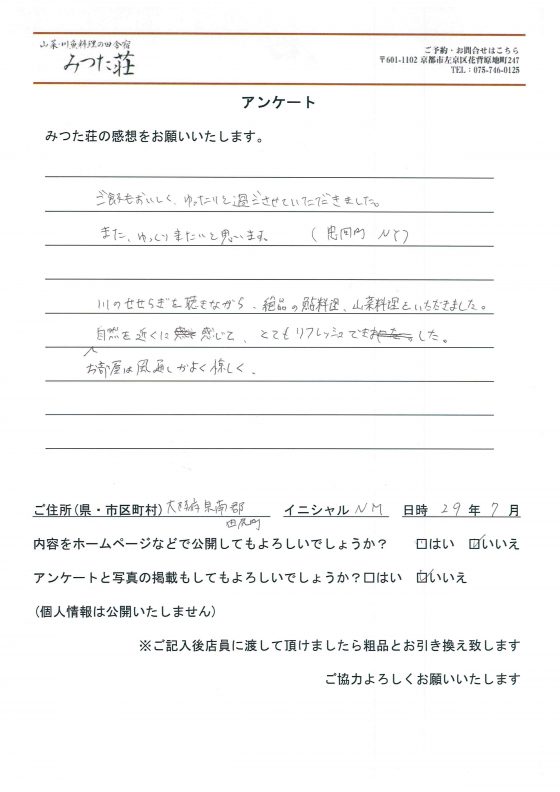 山菜・川魚料理の田舎宿
みつた荘
ご予約・お問合せはこちら
〒601-1102 京都市左京区花脊原地町247
TEL：075-746-0125
アンケート
みつた荘の感想をお願いいたします。
ご飯もおいしく、ゆったりと過ごさせていただきました。
また、ゆっくりきたいと思います。 (忠岡町 NY)
川のせせらぎを聴きながら、絶品の鮎料理、山菜料理をいただきました。
自然を近くに 感じて、とてもリフレッシュできました。
お部屋は風通しがよく涼しく、
ご住所(県・市区町村) 大阪府泉南郡 イニシャル NM 日時 29 年 7 月
田尻町
内容をホームページなどで公開してもよろしいでしょうか？ □はい ☑いいえ
アンケートと写真の掲載もしてもよろしいでしょうか？□はい ☑いいえ
(個人情報は公開いたしません)
※ご記入後店員に渡して頂けましたら粗品とお引き換え致します
ご協力よろしくお願いいたします